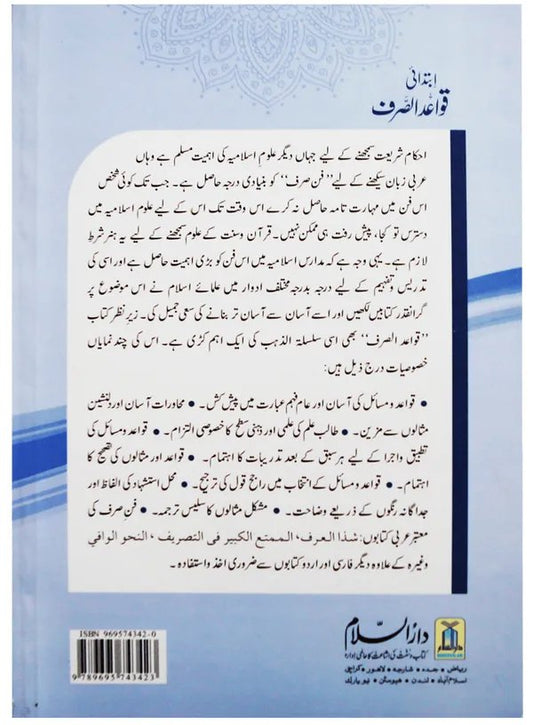 ابتدائی
قواعد الصّرف
احکام شریعت سمجھنے کے لیے جہاں دیگر علوم اسلامیہ کی اہمیت مسلم ہے وہاں
عربی زبان سیکھنے کے لیے ”فن صرف“ کو بنیادی درجہ حاصل ہے۔ جب تک کوئی شخص
اس فن میں مہارت تامہ حاصل نہ کرے اس وقت تک اس کے لیے علوم اسلامیہ میں
دسترس تو کجا، پیش رفت ہی ممکن نہیں۔ قرآن وسنت کے علوم سمجھنے کے لیے یہ ہنر شرط
لازم ہے۔ یہی وجہ ہے کہ مدارس اسلامیہ میں اس فن کو بڑی اہمیت حاصل ہے اور اسی کی
تدریس وتفہیم کے لیے درجہ بدرجہ مختلف ادوار میں علمائے اسلام نے اس موضوع پر
گرانقدر کتابیں لکھیں اور اسے آسان سے آسان تر بنانے کی سعی جمیل کی۔ زیر نظر کتاب
”قواعد الصرف“ بھی اسی سلسلۃ الذہب کی ایک اہم کڑی ہے۔ اس کی چند نمایاں
خصوصیات درج ذیل ہیں:
• قواعد ومسائل کی آسان اور عام فہم عبارت میں پیش کش۔ • محاورات آسان اور دلنشین
مثالوں سے مزین۔ • طالب علم کی علمی اور ذہنی سطح کا خصوصی التزام۔ • قواعد ومسائل کی
تطبیق واجرا کے لیے ہر سبق کے بعد تدریبات کا اہتمام۔ • قواعد اور مثالوں کی تصحیح کا
اہتمام۔ • قواعد ومسائل کے انتخاب میں راجح قول کی ترجیح۔ • محل استشہاد کی الفاظ اور
جداگانہ رنگوں کے ذریعے وضاحت۔ • مشکل مثالوں کا سلیس ترجمہ۔ • فن صرف کی
معتبر عربی کتابوں: شذا العرف، الممتع الكبير في التصريف، النحو الوافي
وغیرہ کے علاوہ دیگر فارسی اور اردو کتابوں سے ضروری اخذ واستفادہ۔
ISBN 969574342-0
9 789695 743423
دارالسلام
کتاب و سنت کی اشاعت کا عالمی ادارہ
ریاض • جدہ • شارجہ • لاہور • کراچی
اسلام آباد • لندن • ہیوسٹن • نیویارک
DARUSSALAM